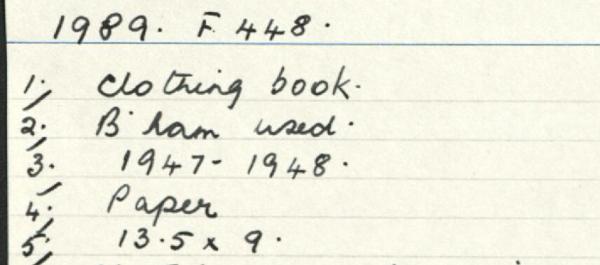 1989. F 448.
1. Clothing book.
2. B'ham used.
3. 1947-1948.
4. Paper
5. 13.5 x 9.